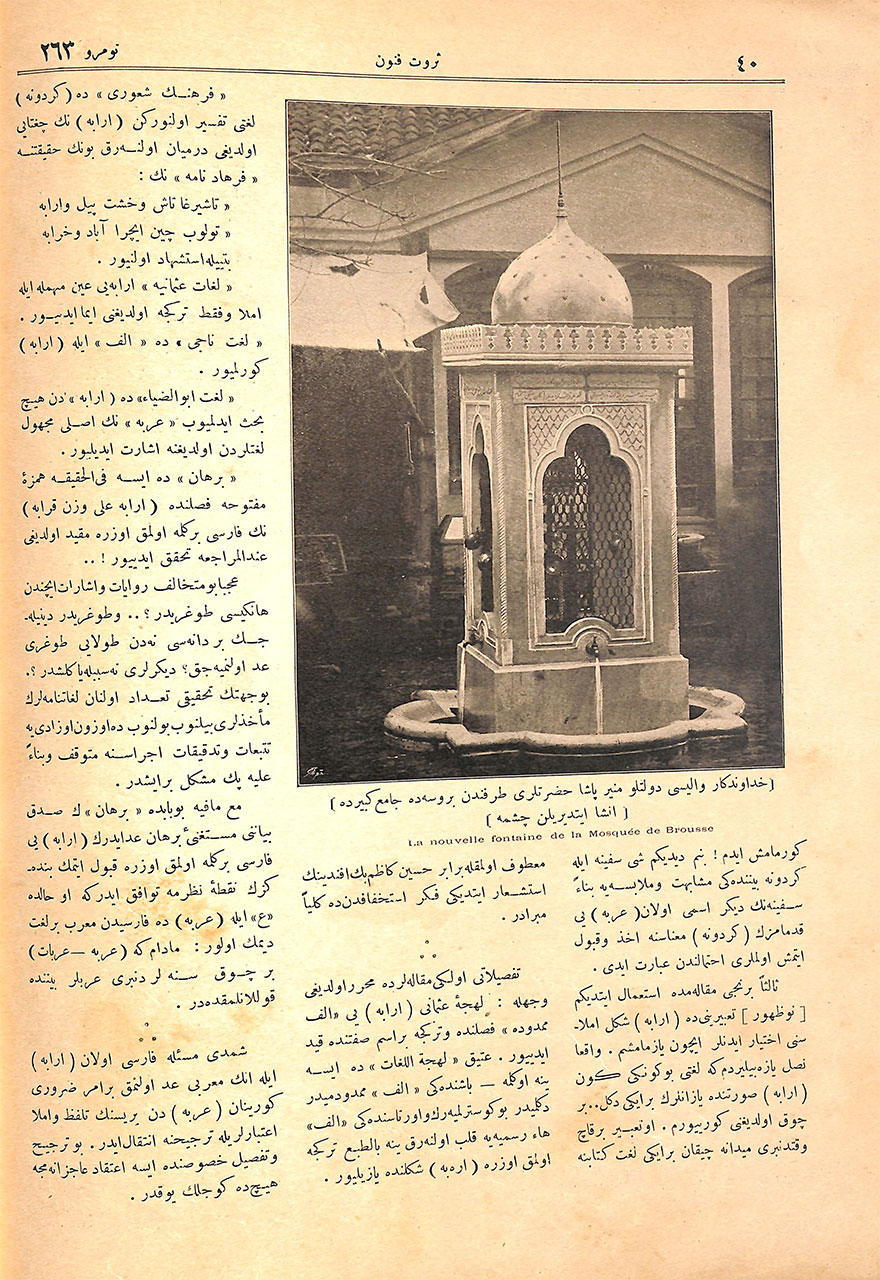 ٤٠
ثروت فنون
نومرو ٢٦٣
[خداوندكار واليسى دولتلو منير پاشا حضرتلرى طرفندن بروسه‌ده جامع كبيرده]
[انشا ايتديريلن چشمه]
La nouvelle fontaine de la Mosquée de Brousse
كورمامش ايدم! بنم ديديكم شى سفينه ايله
كردونه بيننده‌كى مشابهت وملابسه‌يه بناءً
سفينه‌نك ديكر اسمى اولان (عربه) يى
قدمامزك (كردونه) معناسنه اخذ وقبول
ايتمش اولملرى احتمالندن عبارت ايدى.
ثالثاً برنجى مقاله‌مده استعمال ايتديكم
[نوظهور] تعبيرينى‌ده (ارابه) شكل املا‌ـ
سنى اختيار ايدنلر ايچون يازمامشم. واقعا
نصل يازه‌بيليردم‌كه لغتى بوكونكى كون
(ارابه) صورتنده يازانلرك برايكى دكل.. بر
چوق اولديغنى كورييورم. اوتعبير برقاچ
وقتدنبرى ميدانه چيقان برايكى لغت كتابنه
معطوف اولمقله برابر حسين كاظم بك افندينك
استشعار ايتديكى فكر استخفافدن‌ده كلياً
مبرادر.
تفصيلاتى اولكى مقاله‌لرده محرر اولديغى
وجهله: لهجهٔ عثمانى (ارابه) يى «الف
ممدوده» فصلنده وتركجه براسم صفتنده قيد
ايدييور. عتيق «لهجة اللغات» ده ايسه
ينه اوكلمه — باشنده‌كى «الف» ممدودميدر
دكلميدر بوكوسترلميه‌رك واورتاسنده‌كى «الف»
هاء رسميه‌يه قلب اولنه‌رق ينه بالطبع تركجه
اولمق اوزره (اره‌به) شكلنده يازيليور.
«فرهنك شعورى» ده (كردونه)
لغتى تفسير اولنوركن (ارابه) نك چغتايى
اولديغى درميان اولنه‌رق بونك حقيقتنه
«فرهاد نامه» نك:
«تاشيرغا تاش وخشت پيل وارابه
«تولوب چين ايچرا آباد وخرابه
بيتيله استشهاد اولنيور.
«لغات عثمانيه» ارابه‌يى عين مهمله ايله
املا وفقط تركجه اولديغنى ايما ايدييور.
«لغت ناجى» ده «الف» ايله (ارابه)
كورلميور.
«لغت ابوالضياء» ده (ارابه) دن هيچ
بحث ايدلميوب «عربه» نك اصلى مجهول
لغتلردن اولديغنه اشارت ايديليور.
«برهان» ده ايسه فى‌الحقيقه همزهٔ
مفتوحه فصلنده (ارابه على وزن قرابه)
نك فارسى بركلمه اولمق اوزره مقيد اولديغى
عندالمراجعه تحقق ايدييور!..
عجبا بو متخالف روايات واشارات ايچندن
هانكيسى طوغريدر؟.. وطوغريدر دينيله‌ـ
جك بر دانه‌سى نه‌دن طولايى طوغرى
عد اولنميه‌جق؟ ديكرلرى نه سببله ياكلشدر؟.
بوجهتك تحقيقى تعداد اولنان لغاتنامه‌لرك
مأخذلرى بيلنوب بولنوب ده اوزون اوزادى‌يه
تتبعات وتدقيقات اجراسنه متوقف وبناءً
عليه پك مشكل برايشدر.
مع مافيه بوبابده «برهان» ك صدق
بياننى مستغنئ برهان عد ايدرك (ارابه) يى
فارسى بركلمه اولمق اوزره قبول ايتمك بنده‌ـ
كزك نقطهٔ نظرمه توافق ايدركه او حالده
«ع» ايله (عربه) ده فارسيدن معرب برلغت
ديمك اولور: مادام‌كه (عربه — عربات)
بر چوق سنه لردنبرى عربلر بيننده
قوللانلمقده‌در.
شمدى مسئله فارسى اولان (ارابه)
ايله انك معربى عد اولنمق برامر ضرورى
كورينان (عربه) دن بريسنك تلفظ واملا
اعتبارلريله ترجيحنه انتقال ايدر. بوترجيح
وتفصيل خصوصنده ايسه اعتقاد عاجزانه‌مجه
هيچ‌ده كوجلك يوقدر.